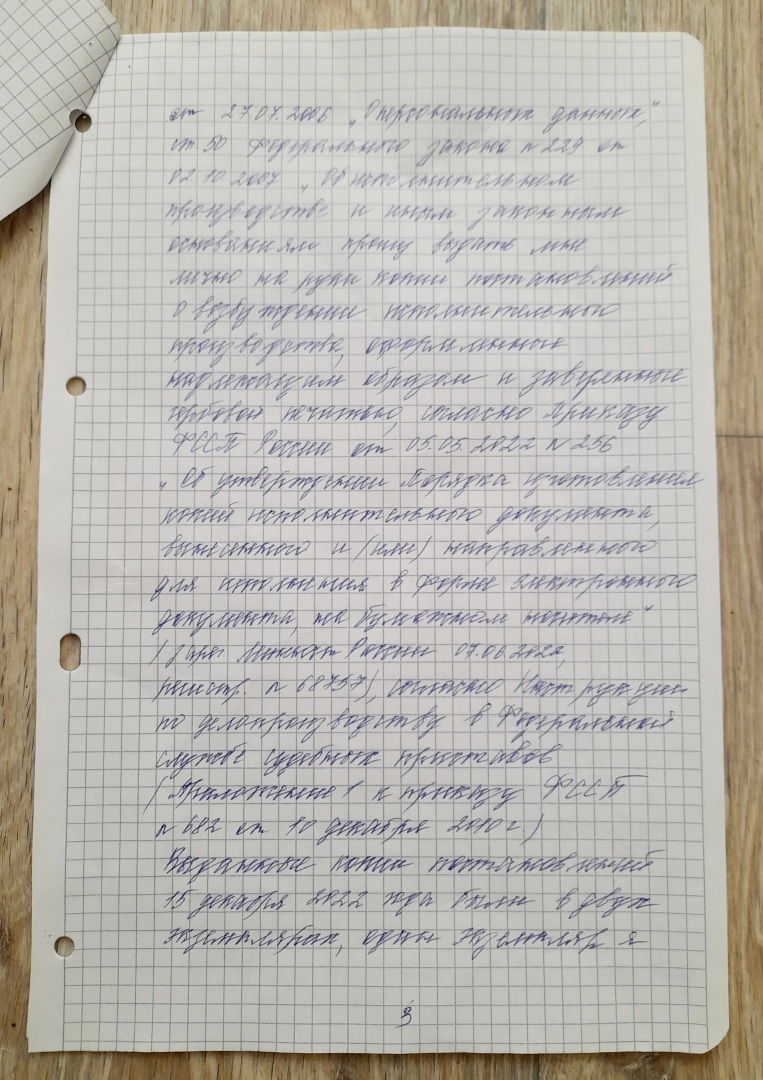 от 27.07.2006 „О персональных данных",
ст. 50 Федерального закона № 229 от
02.10.2007 „Об исполнительном
производстве и иным законным
основаниям прошу выдать мне
лично на руки копии постановлений
о возбуждении исполнительного
производства, оформленные
надлежащим образом и заверенные
гербовой печатью, согласно Приказу
ФССП России от 05.05.2022 № 256
„Об утверждении Порядка изготовления
копий исполнительного документа,
вынесенного и (или) направленного
для исполнения в форме электронного
документа, на бумажном носителе"
(зарег Минюст России 07.06.2022,
регистр. № 68757), согласно Инструкции
по делопроизводству в Федеральной
службе судебных приставов
(Приложение 1 к приказу ФССП
№ 682 от 10 декабря 2010 г)
Выданные копии постановлений
15 декабря 2022 года были в двух
экземплярах, один экземпляр я
3